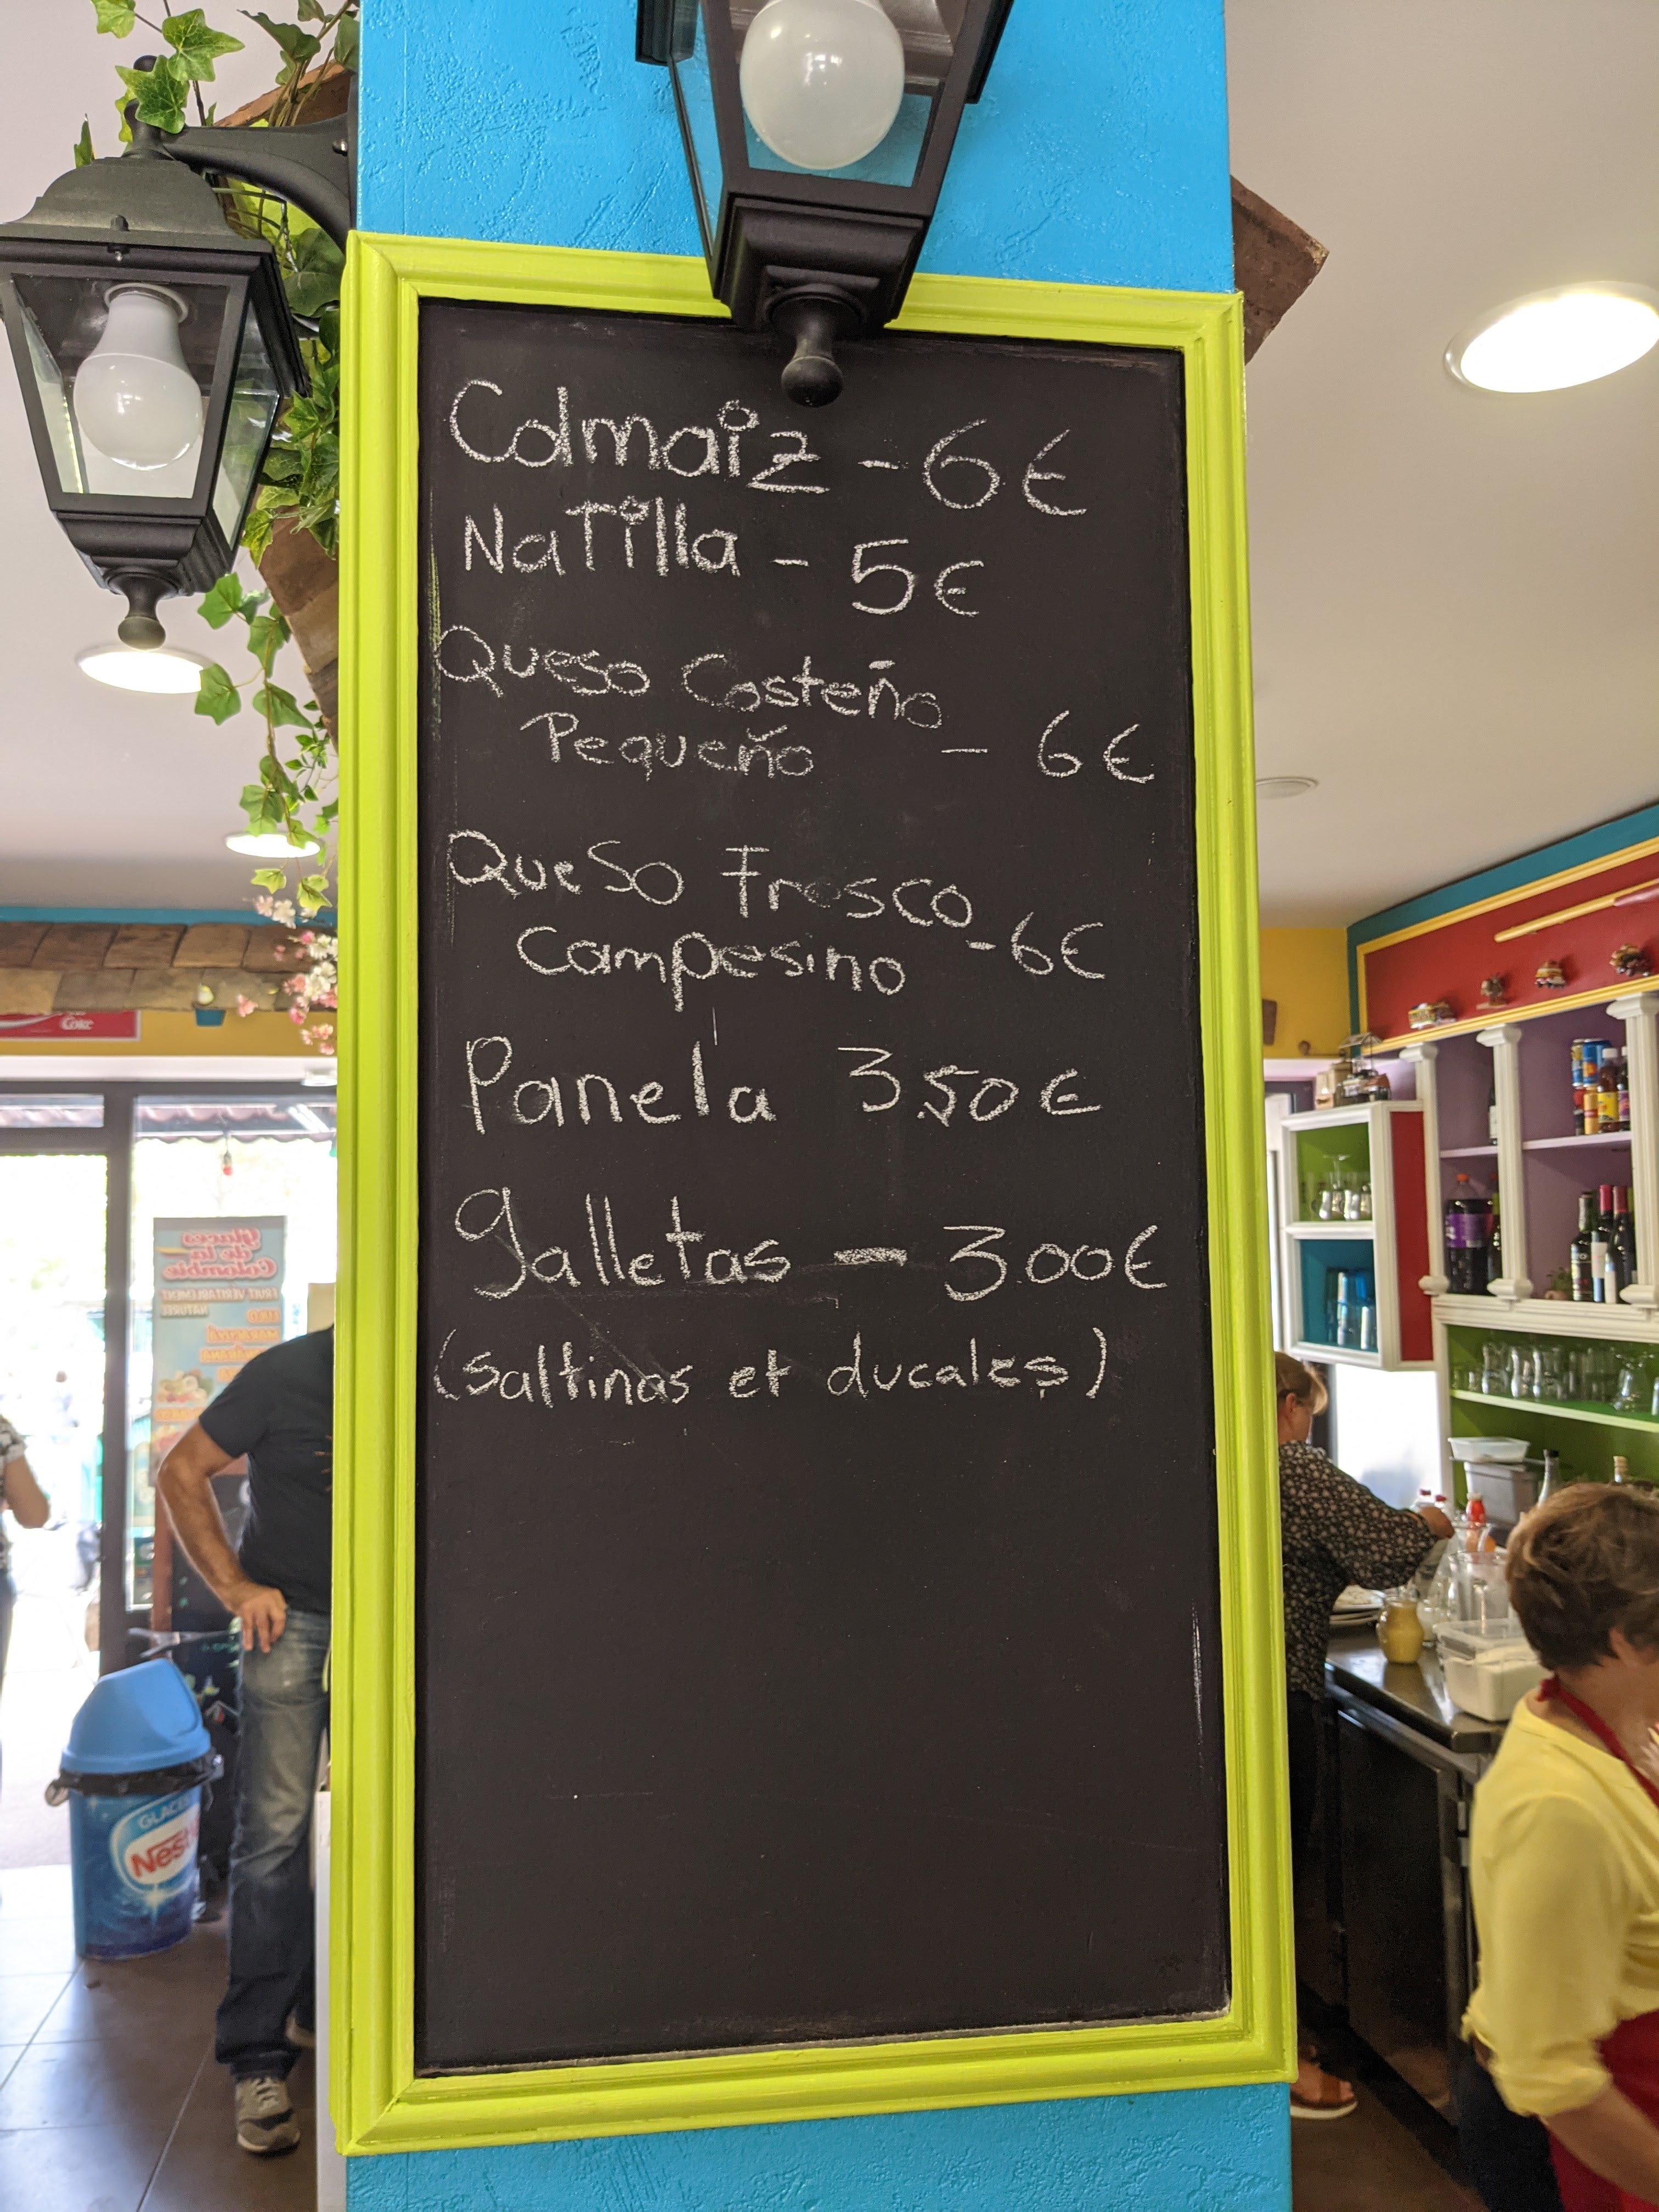 Colmaiz - 6€
NaTilla - 5€
Queso Costeño
Pequeño - 6€
Queso Fresco
Campesino - 6€
Panela 3.50€
galletas - 3.00€
(saltinas et ducales)
Coke
Glaces
de la
Colombie
FRUIT VERITABLEMENT
NATUREL
GLACES
Nestlé